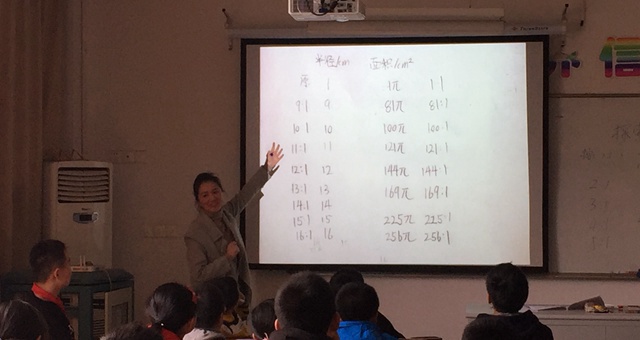 半径/cm 面积/cm²
原 1 1π 1:1
9:1 9 81π 81:1
10:1 10 100π 100:1
11:1 11 121π 121:1
12:1 12 144π 144:1
13:1 13 169π 169:1
14:1 14
15:1 15 225π 225:1
16:1 16 256π 256:1